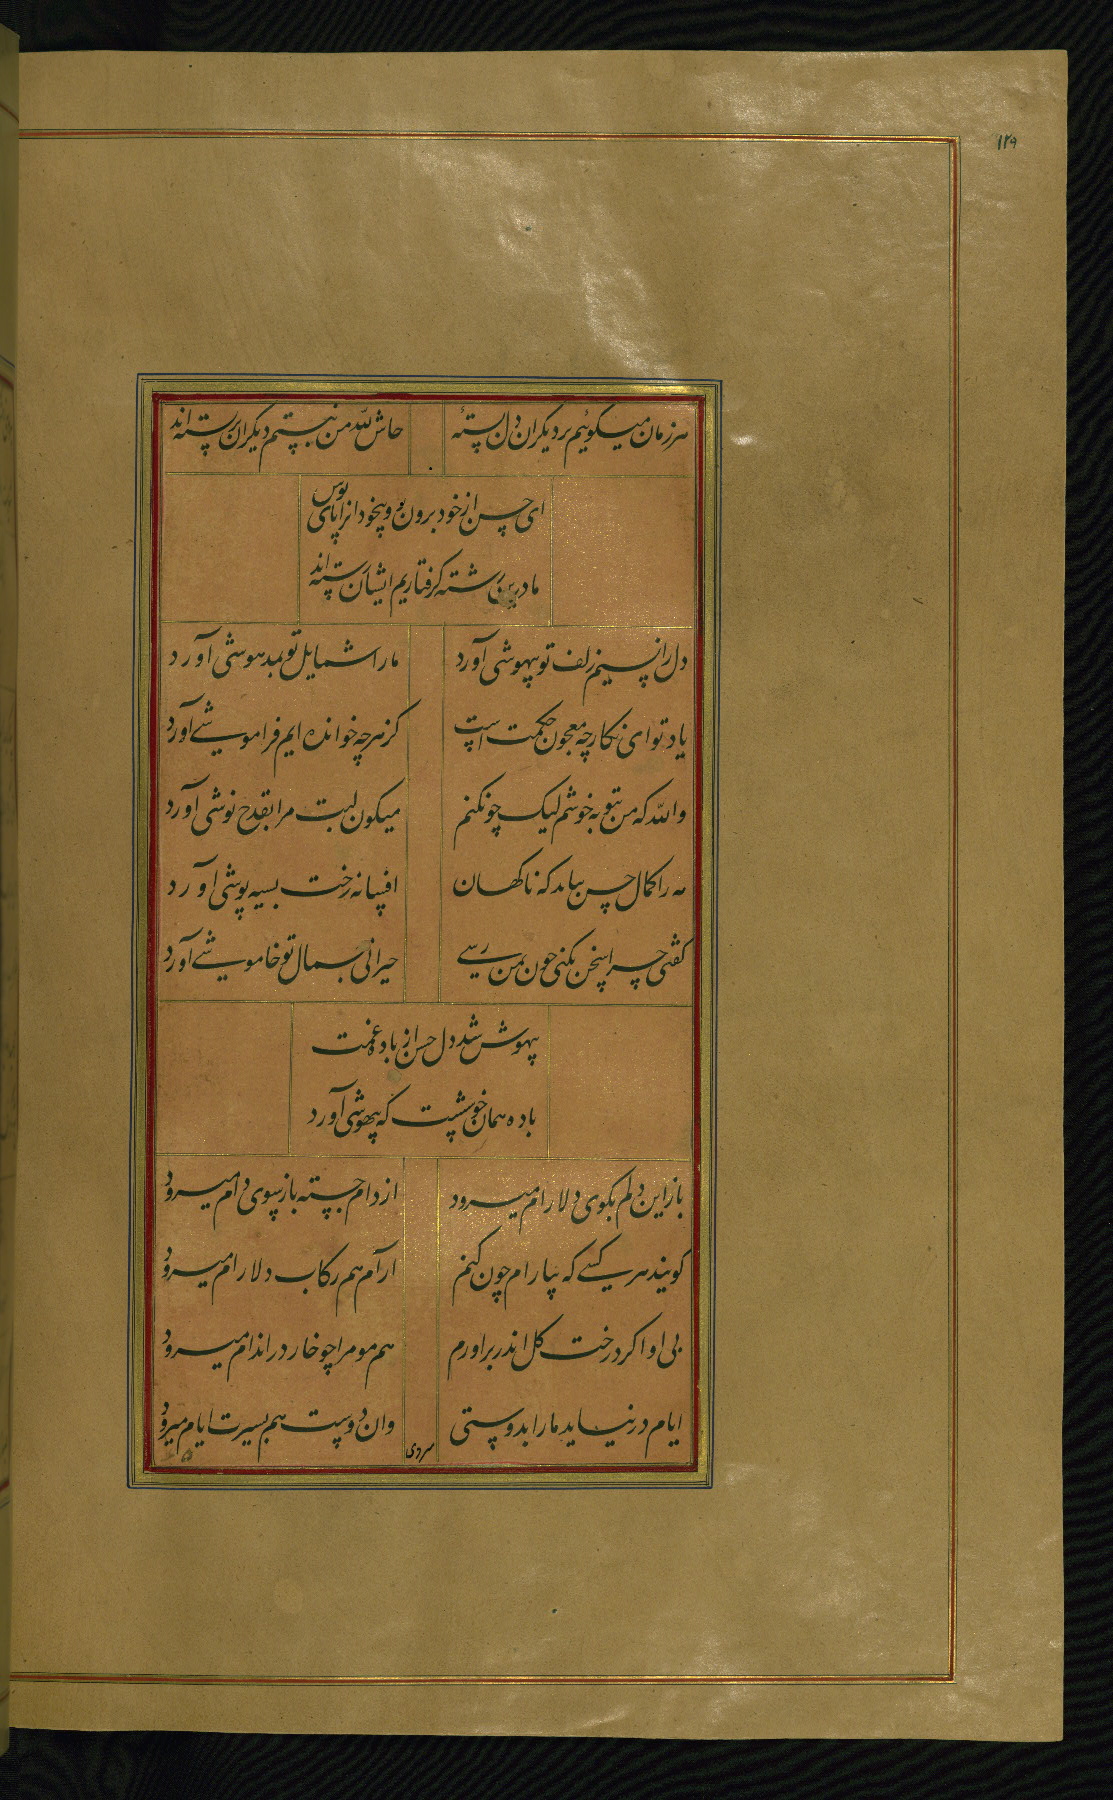 ۱۲۹
هر زمان میکوئیم بر دیکران دل بستهٔ حاش لله من نبستم دیکران بسته اند
ای حسن از خود برون رو و بیخود انرا پای بوس
ما درین رشته کرفتاریم ایشان رسته اند
دل را نسیم زلف تو بیهوشی آورد ما را شمایل تو بمدهوشی آورد
یاد تو ای نکار چه معجون حکمت است کز هر چه خوانده ایم فراموشی آورد
والله که من بتوبه خوشم لیک چو نکنم میکون لبت مرا بقدح نوشی آورد
مه را کمال حسن بیامد که ناکهان افسانه رخت بسیه پوشی آورد
کفتی چرا سخن نکنی چون بمن رسی حیرانی جمال تو خاموشی آورد
بیهوش شد دل حسن از باده غمت
باده همان خوشست که بیهوشی آورد
باز این دلم بکوی دلارام میرود از دام جسته باز بسوی دام میرود
کویند هر کسی که بیارام چون کنم ارام هم رکاب دلارام میرود
بی او اکر درخت کل اندر براورم هم مو مرا چو خار در اندام میرود
ایام در نیاید ما را بدوستی وان دوست هم بسیرت ایام میرود
سروی